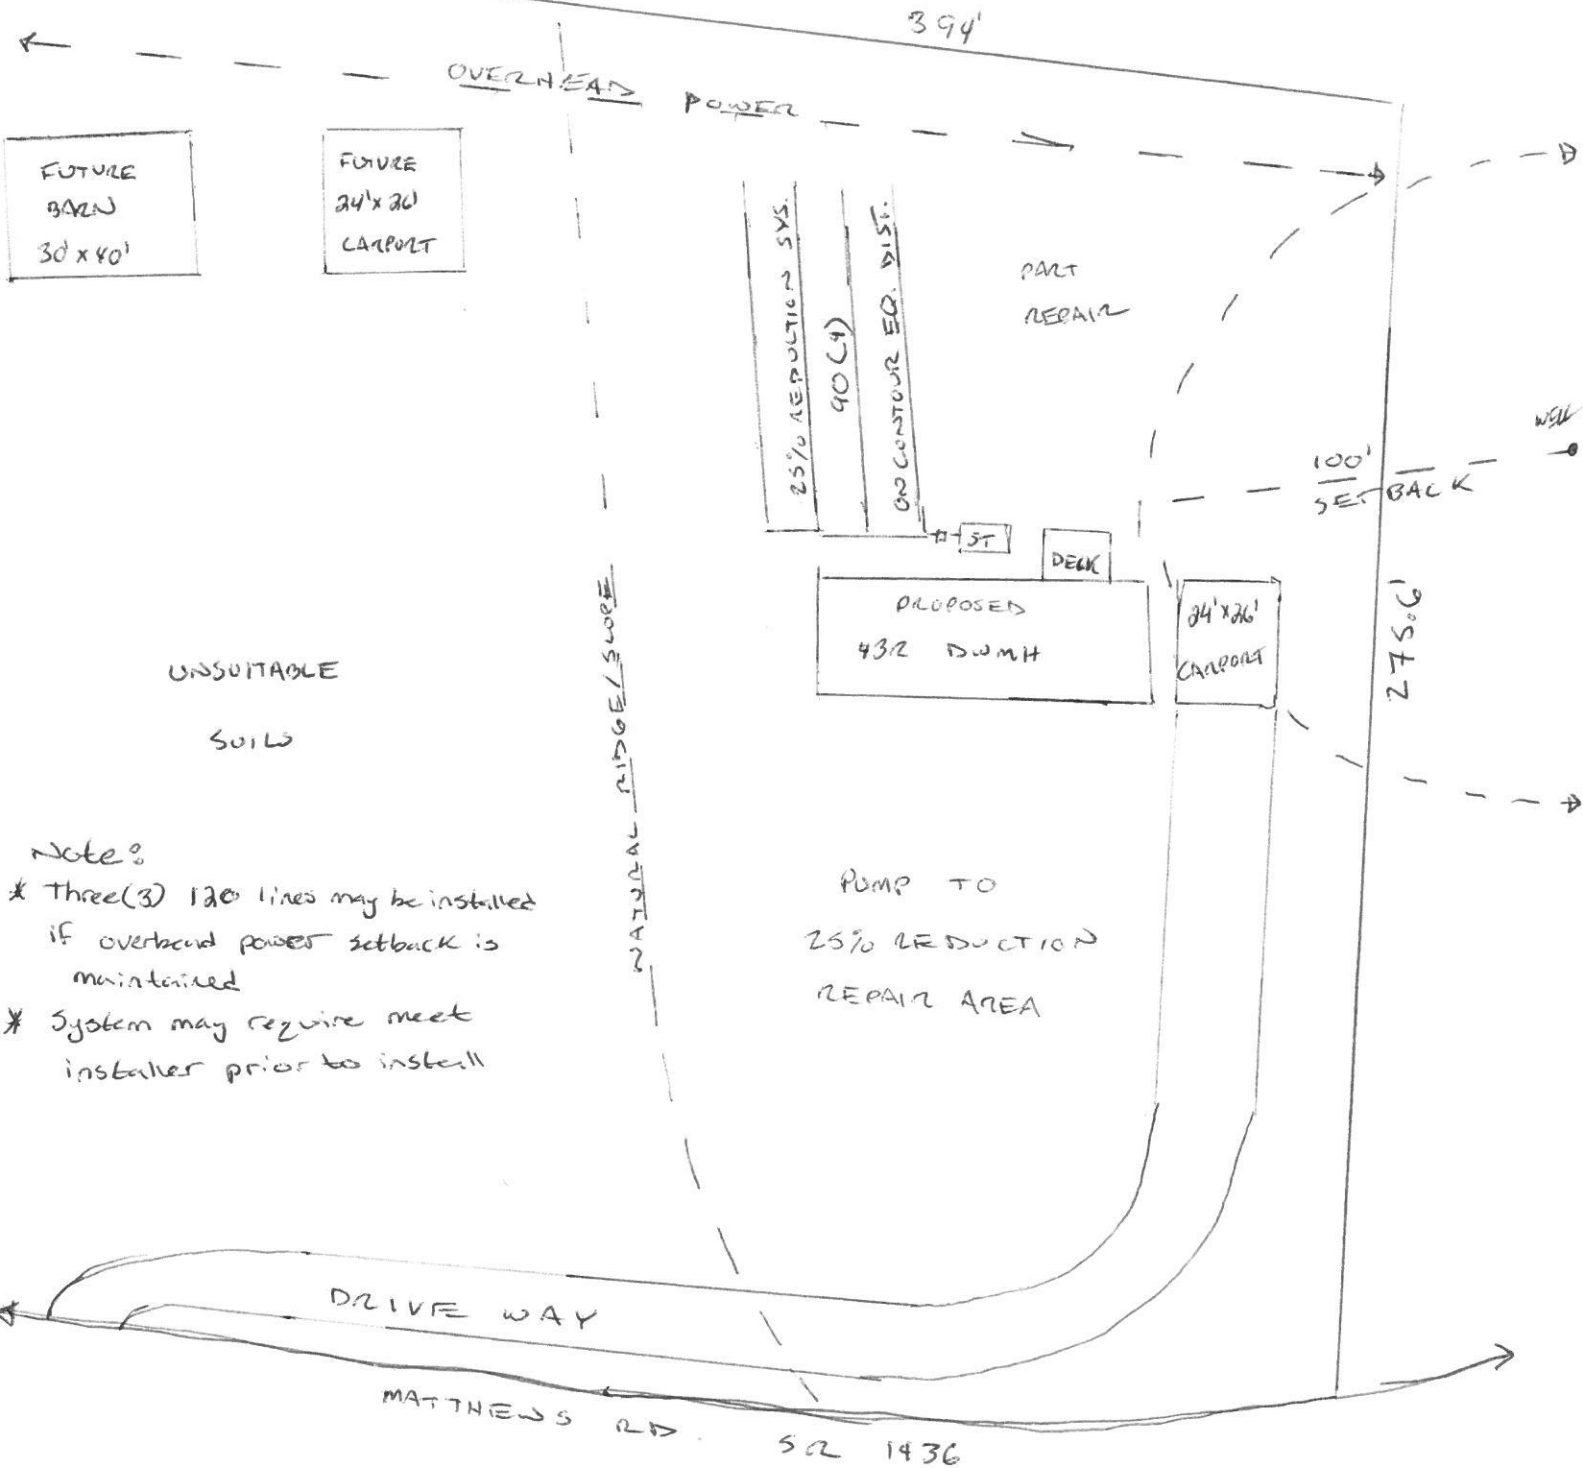 394'
OVERHEAD POWER
FUTURE
BARN
30' x 40'
FUTURE
24' x 26'
CARPORT
25% REDUCTION SYS.
90 (4)
ON CONTOUR EQ. DIST.
PART
REPAIR
WELL
100'
SETBACK
ST
DECK
PROPOSED
4BR DWMH
24' x 26'
CARPORT
275.6'
NATURAL RIDGE/SLOPE
UNSUITABLE
SOILS
Note:
* Three(3) 120 lines may be installed
if overhead power setback is
maintained
* System may require meet
installer prior to install
PUMP TO
25% REDUCTION
REPAIR AREA
DRIVE WAY
MATTHEWS RD. SR 1436